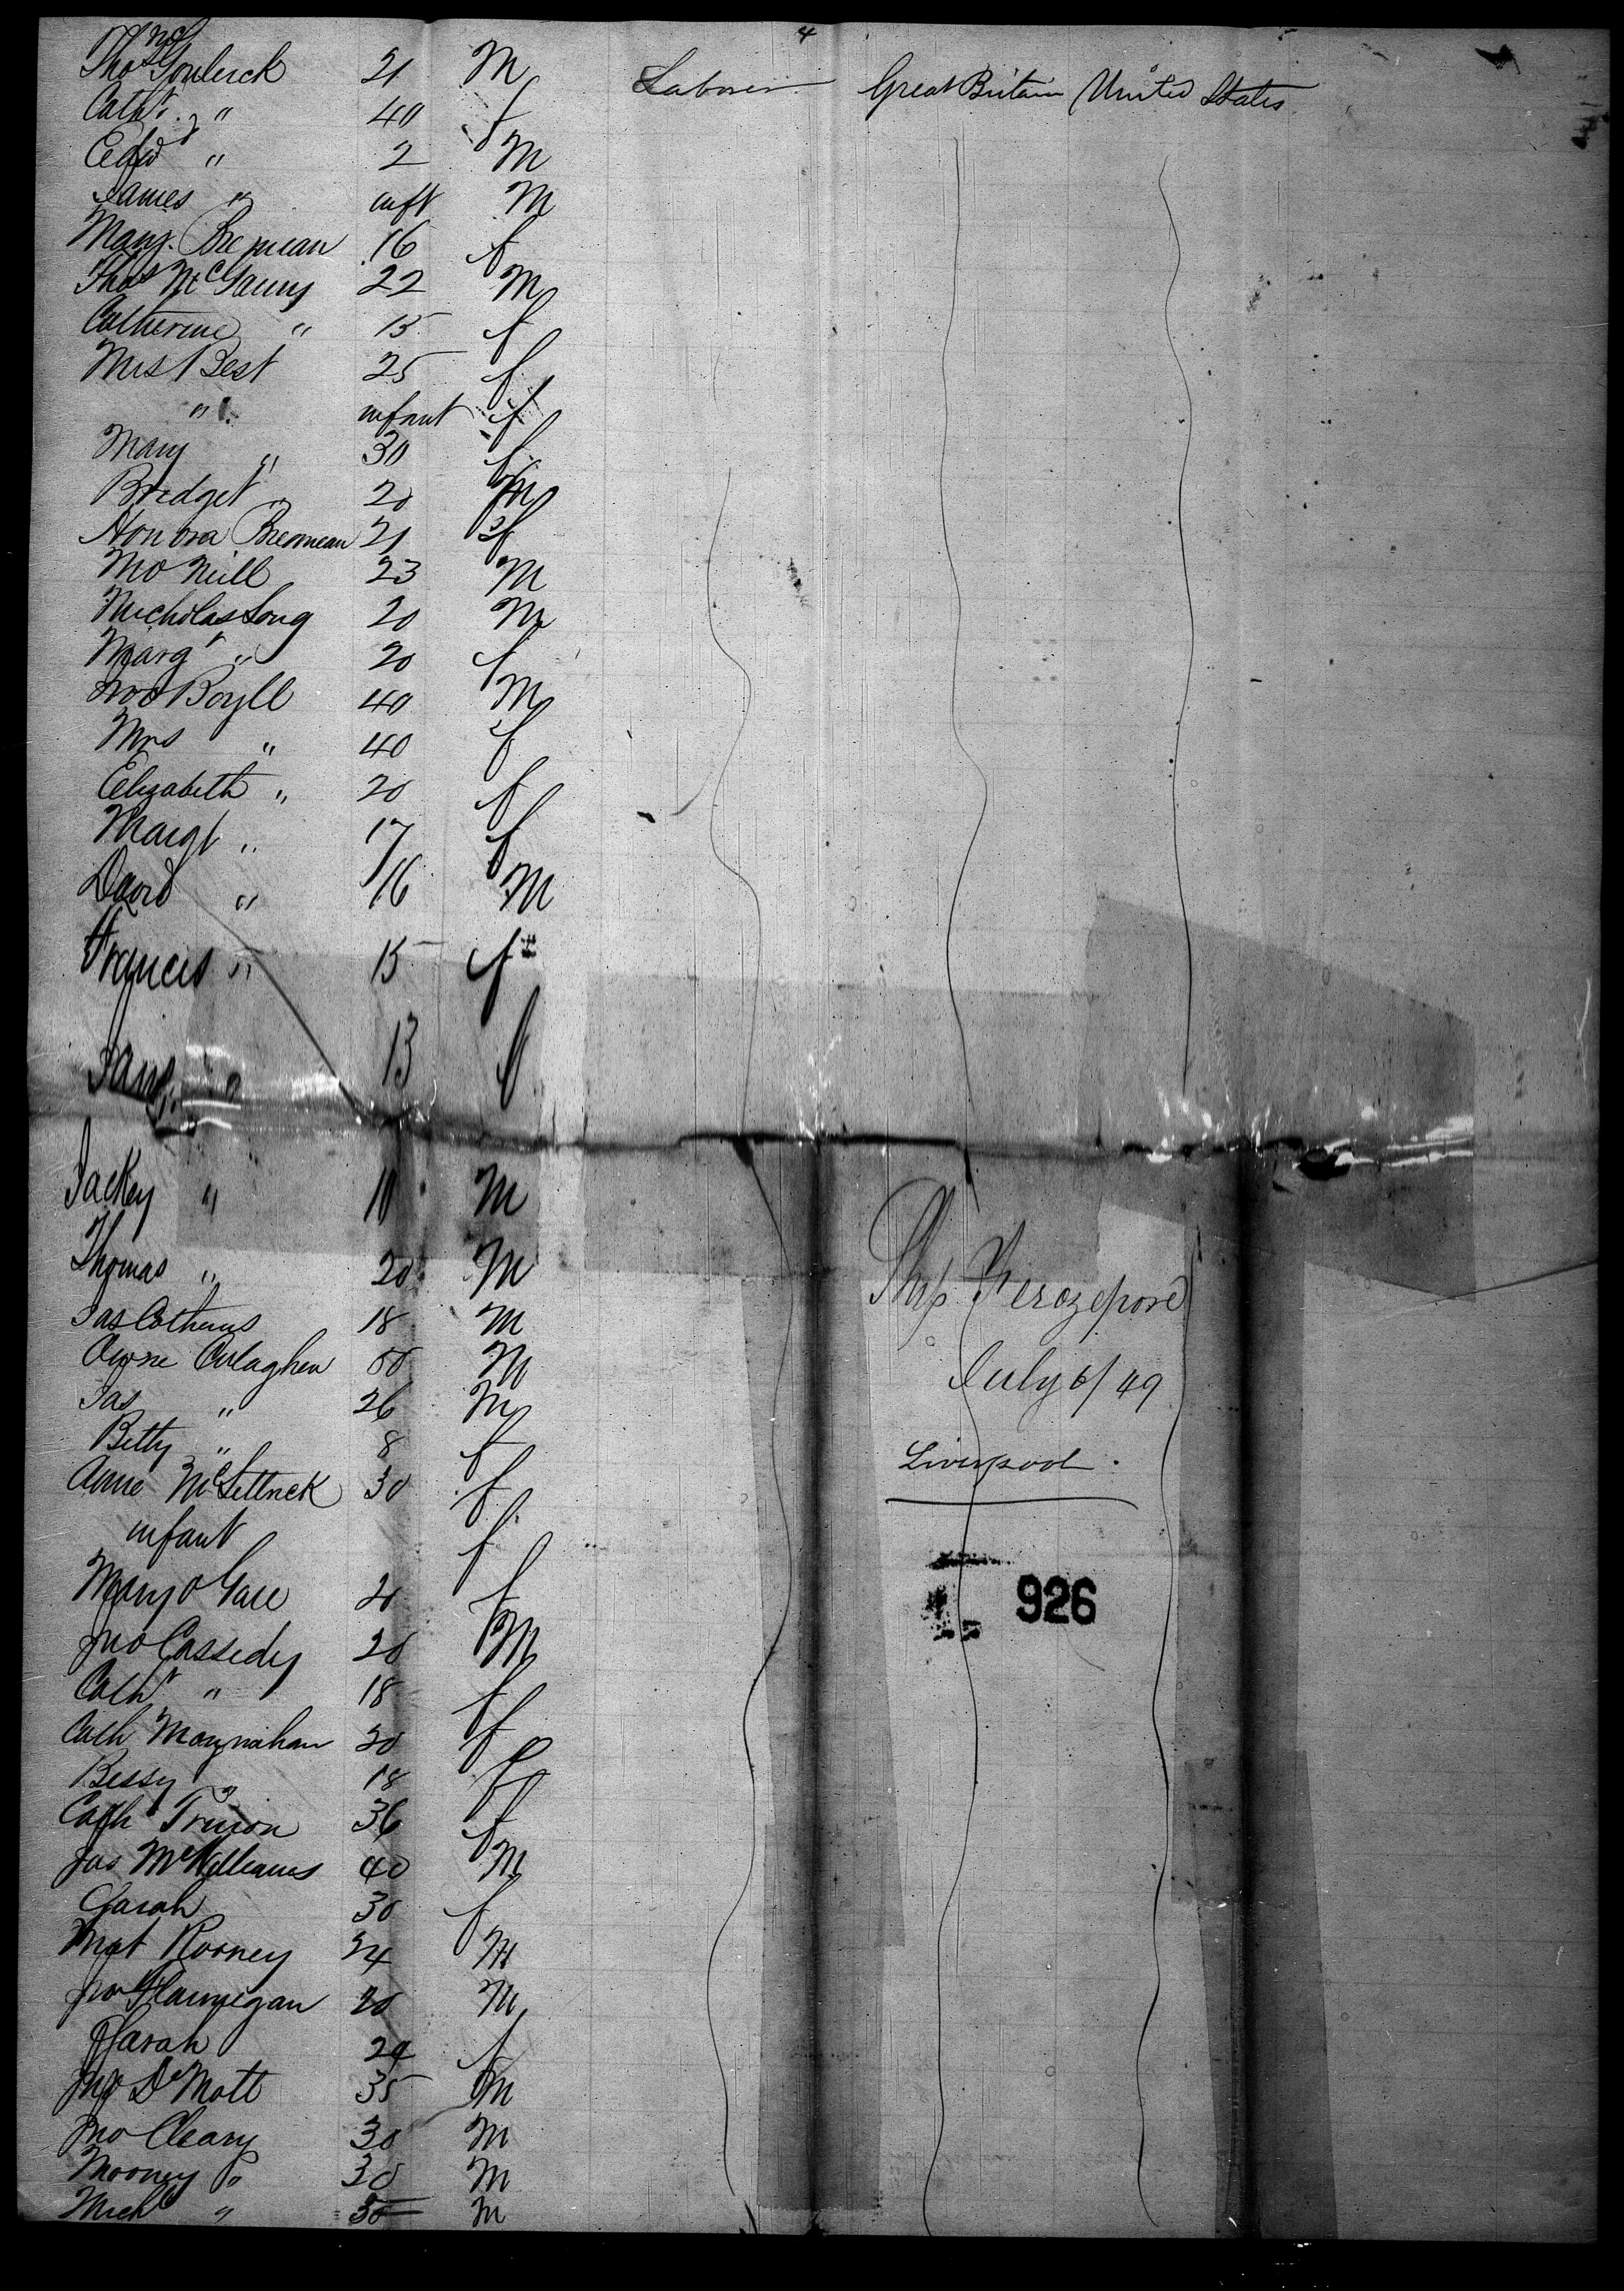 4
Thos McGoulrick 21 M Laborer Great Britain United States
Catht. " 40 f
Edwd " 2 M
James " inft M
Mary. Brennan 16 f
Thos McGaury 22 M
Catherine " 15 f
Mrs Best 25 f
" infant f
Mary " 30 f
Bridget " 20
Honora Brennean 21 f
Neill 23 M
Nicholas Long 20 M
Margt " 20 f
Jno Boyll 40 M
Mrs " 40 f
Elizabeth " 20 f
Margt " 17 f
David " 16 M
Francis " 15 f
Jane " 13 f
Jackey " 10 M
Thomas " 20 M
Jas Cotherus 18 M
Culaghen M
Jas " 26 M
Betty " 8 f
Anne McSettrick 30 f
infant f
Mary o Gare 20 f
Jno Cassedy 20 M
Catht " 18 f
Cath Moynahan 20 f
Bessy " 18 f
Cath 36 f
Jas McWilliams 40 M
Sarah 30 f
Mat Rooney 24 M
Jno Flannigan 20 M
Sarah 24 f
Jno De Mott 35 M
Jno Cleary 30 M
Mooney " 30 M
Michl " 30 M
Ship Ferozepore
July 6/49
Liverpool.
926